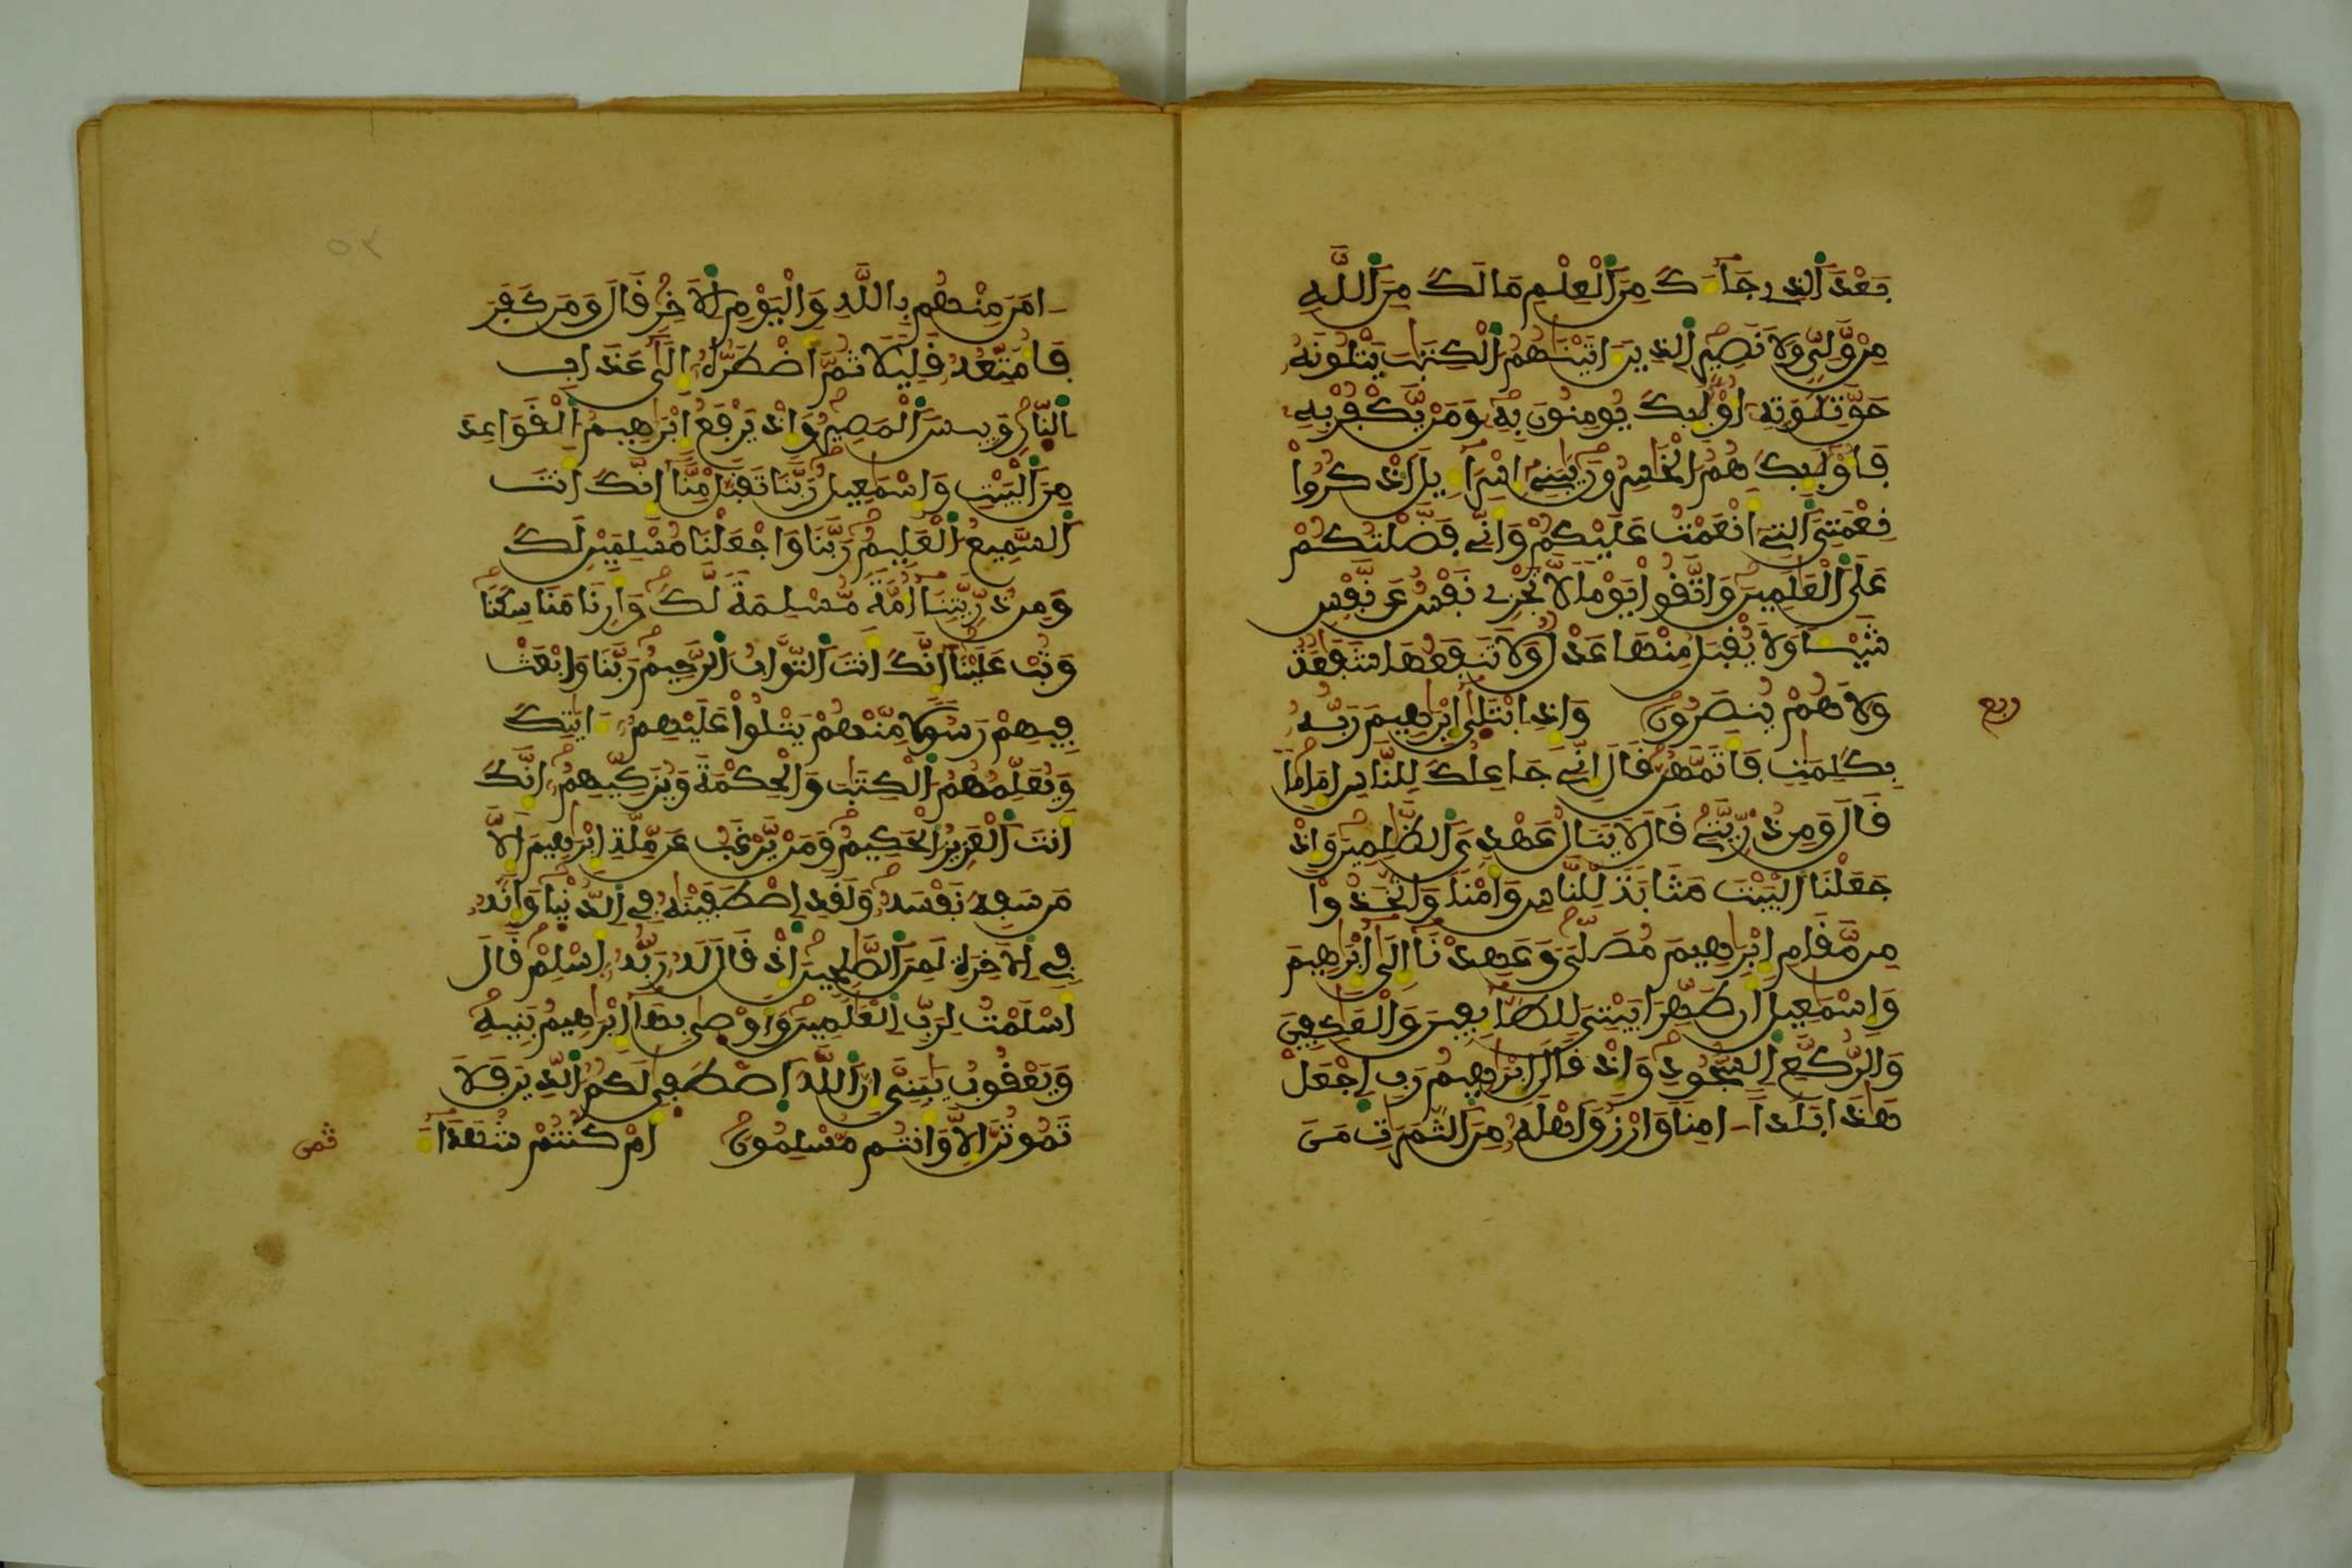 بَعْدَ ٱلذِے جَآءَكَ مِنَ ٱلْعِلْمِ مَا لَكَ مِنَ ٱللَّهِ
مِنْ وَّلِيّٖ وَلَا نَصِيرٍ ٱلذِينَ ءَاتَيْنَٰهُمُ ٱلْكِتَٰبَ يَتْلُونَهُۥ
حَقَّ تِلَٰوَتِهِۦٓ أُوْلَٰٓئِكَ يُومِنُونَ بِهِۦ وَمَنْ يَّكْفُرْ بِهِۦ
فَأُوْلَٰٓئِكَ هُمُ ٱلْخَٰسِرُونَ يَٰبَنِےٓ إِسْرَآءِيلَ ٱذْكُرُواْ
نِعْمَتِيَ ٱلتِےٓ أَنْعَمْتُ عَلَيْكُمْ وَأَنِّے فَضَّلْتُكُمْ
عَلَى ٱلْعَٰلَمِينَ وَاتَّقُواْ يَوْماً لَّا تَجْزِے نَفْسٌ عَن نَّفْسٖ
شَيْـٔاً وَلَا يُقْبَلُ مِنْهَا عَدْلٌ وَلَا تَنفَعُهَا شَفَٰعَةٌ
وَلَا هُمْ يُنصَرُونَ وَإِذِ ٱبْتَلَىٰٓ إِبْرَٰهِيمَ رَبُّهُۥ
ربع
بِكَلِمَٰتٖ فَأَتَمَّهُنَّ قَالَ إِنِّے جَاعِلُكَ لِلنَّاسِ إِمَاماً
قَالَ وَمِن ذُرِّيَّتِے قَالَ لَا يَنَالُ عَهْدِيَ ٱلظَّٰلِمِينَ وَإِذْ
جَعَلْنَا ٱلْبَيْتَ مَثَابَةً لِّلنَّاسِ وَأَمْناً وَاتَّخَذُواْ
مِن مَّقَامِ إِبْرَٰهِيمَ مُصَلّىٗ وَعَهِدْنَآ إِلَىٰٓ إِبْرَٰهِيمَ
وَإِسْمَٰعِيلَ أَن طَهِّرَا بَيْتِيَ لِلطَّآئِفِينَ وَالْعَٰكِفِينَ
وَالرُّكَّعِ ٱلسُّجُودِ وَإِذْ قَالَ إِبْرَٰهِيمُ رَبِّ ٱجْعَلْ
هَٰذَا بَلَداً ءَامِناً وَارْزُقْ أَهْلَهُۥ مِنَ ٱلثَّمَرَٰتِ مَنَ
ـامَنَ مِنْهُم بِاللَّهِ وَالْيَوْمِ ٱلَاخِرِ قَالَ وَمَن كَفَرَ
فَأُمَتِّعُهُۥ قَلِيلاً ثُمَّ أَضْطَرُّهُۥٓ إِلَىٰ عَذَابِ
ٱلنَّارِ وَبِيسَ ٱلْمَصِيرُ وَإِذْ يَرْفَعُ إِبْرَٰهِيمُ ٱلْقَوَاعِدَ
مِنَ ٱلْبَيْتِ وَإِسْمَٰعِيلُ رَبَّنَا تَقَبَّلْ مِنَّآ إِنَّكَ أَنتَ
ٱلسَّمِيعُ ٱلْعَلِيمُ رَبَّنَا وَاجْعَلْنَا مُسْلِمَيْنِ لَكَ
وَمِن ذُرِّيَّتِنَآ أُمَّةً مُّسْلِمَةً لَّكَ وَأَرِنَا مَنَاسِكَنَا
وَتُبْ عَلَيْنَآ إِنَّكَ أَنتَ ٱلتَّوَّابُ ٱلرَّحِيمُ رَبَّنَا وَابْعَثْ
فِيهِمْ رَسُولاً مِّنْهُمْ يَتْلُواْ عَلَيْهِمُۥٓ ءَايَٰتِكَ
وَيُعَلِّمُهُمُ ٱلْكِتَٰبَ وَالْحِكْمَةَ وَيُزَكِّيهِمُۥٓ إِنَّكَ
أَنتَ ٱلْعَزِيزُ ٱلْحَكِيمُ وَمَنْ يَّرْغَبُ عَن مِّلَّةِ إِبْرَٰهِيمَ إِلَّا
مَن سَفِهَ نَفْسَهُۥ وَلَقَدِ ٱصْطَفَيْنَٰهُ فِے ٱلدُّنْيَا وَإِنَّهُۥ
فِے ٱلَاخِرَةِ لَمِنَ ٱلصَّٰلِحِينَ إِذْ قَالَ لَهُۥ رَبُّهُۥٓ أَسْلِمْ قَالَ
أَسْلَمْتُ لِرَبِّ ٱلْعَٰلَمِينَ وَأَوْصَىٰ بِهَآ إِبْرَٰهِيمُ بَنِيهِ
وَيَعْقُوبُ يَٰبَنِيَّ إِنَّ ٱللَّهَ ٱصْطَفَىٰ لَكُمُ ٱلدِّينَ فَلَا
تَمُوتُنَّ إِلَّا وَأَنتُم مُّسْلِمُونَ أَمْ كُنتُمْ شُهَدَآءَ
ثمن